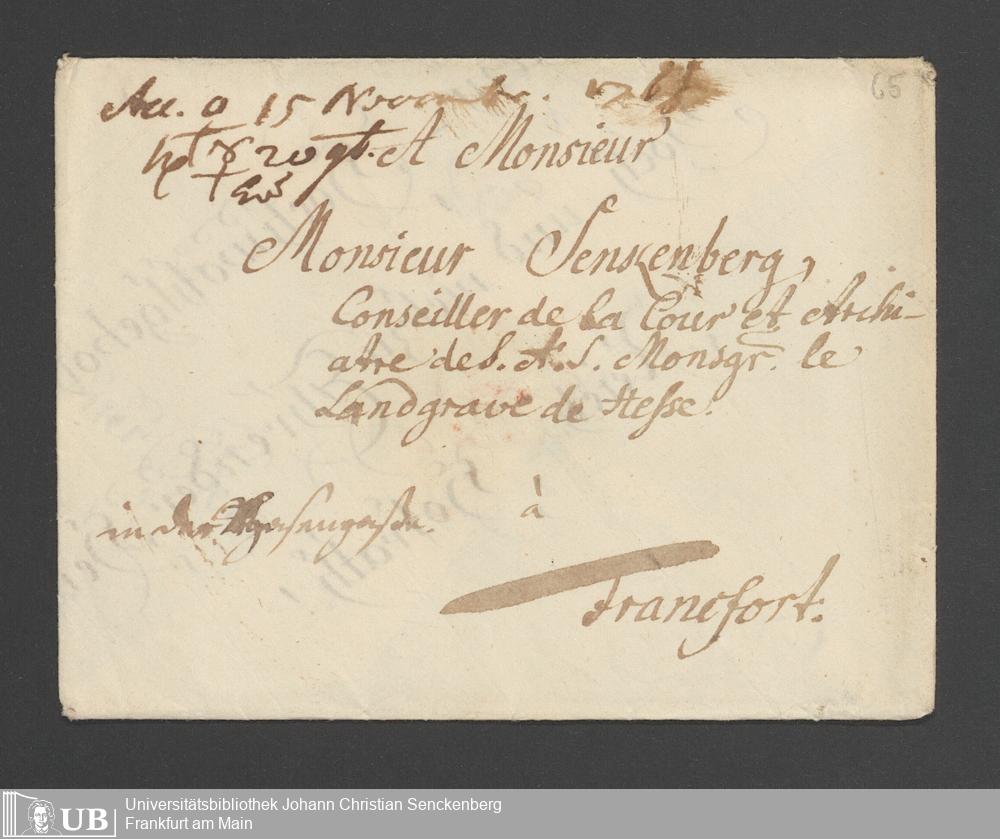 65
Acc. 15 Novembr.
20
A Monsieur
Monsieur Senkenberg,
Conseiller de la Cour et Archi-
atre de S. A. S. Monsgr. le
Landgrave de Hesse.
à
in der Hasengasse.
Francfort.
UB
Universitätsbibliothek Johann Christian Senckenberg
Frankfurt am Main